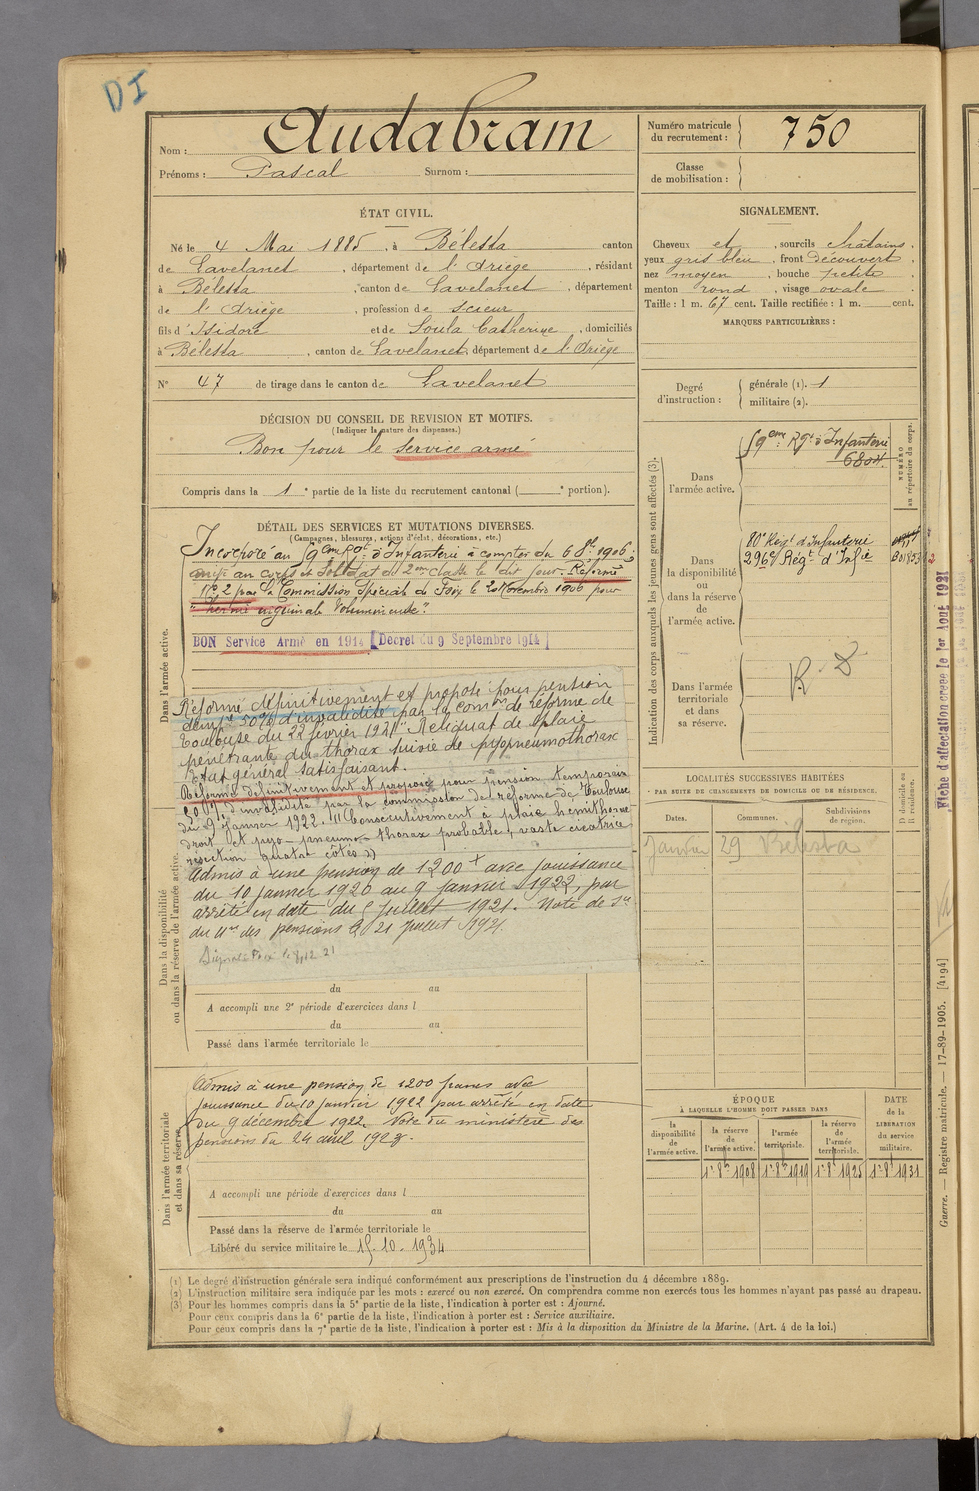 DI
Nom : Audabram
Prénoms : Pascal Surnom :
Numéro matricule du recrutement : 750
Classe de mobilisation :
ÉTAT CIVIL.
Né le 4 Mai 1885, à Bélesta canton
de Lavelanet, département de l'Ariège, résidant
à Bélesta, canton de Lavelanet, département
de l'Ariège, profession de scieur
fils d'Isidore et de Soula Catherine, domiciliés
à Bélesta, canton de Lavelanet, département de l'Ariège
N° 47 de tirage dans le canton de Lavelanet
SIGNALEMENT.
Cheveux et, sourcils châtains,
yeux gris bleu, front découvert,
nez moyen, bouche petite,
menton rond, visage ovale.
Taille : 1 m. 67 cent. Taille rectifiée : 1 m. cent.
MARQUES PARTICULIÈRES :
Degré d'instruction : générale (1). 1
militaire (2).
DÉCISION DU CONSEIL DE REVISION ET MOTIFS.
(Indiquer la nature des dispenses.)
Bon pour le service armé
Compris dans la 1e partie de la liste du recrutement cantonal ( e portion).
DÉTAIL DES SERVICES ET MUTATIONS DIVERSES.
(Campagnes, blessures, actions d'éclat, décorations, etc.)
Dans l'armée active.
Incorporé au 59em Rgt d'Infanterie à compter du 6 8bre 1906,
au corps et Soldat de 2me classe le dit jour. Réformé
N° 2 par la Commission Spéciale de Foix le 2 Novembre 1906 pour
"hernie inguinale volumineuse".
BON Service Armé en 1914 [Décret du 9 Septembre 1914]
Réformé définitivement et proposé pour pension
50% d'invalidité par la comon de réforme de
Toulouse du 22 février 1921 "Reliquat de plaie
pénétrante du thorax suivie de pyopneumothorax
Etat général satisfaisant.
Réformé définitivement et proposé pour pension temporaire
50% d'invalidité par la commission de réforme de Toulouse
du 9 Janvier 1922. "Consécutivement à plaie hémithorax
droit et pyo-pneumo-thorax probable, vaste cicatrice
résection quatre côtes"
Admis à une pension de 1200 f avec jouissance
du 10 janvier 1920 au 9 janvier 1922, par
arrêté en date du 5 juillet 1921. Note de
du Mre des pensions 21 juillet 1921.
Dans la disponibilité ou dans la réserve de l'armée active.
du au
A accompli une 2e période d'exercices dans l
du au
Passé dans l'armée territoriale le
Dans l'armée territoriale et dans sa réserve.
Admis à une pension de 1200 francs avec
jouissance du 10 janvier 1922 par arrêté en date
du 9 décembre 1922. Note du ministère des
pensions du 24 avril 1923.
A accompli une période d'exercices dans l
du au
Passé dans la réserve de l'armée territoriale le
Libéré du service militaire le 15-10-1934
Indication des corps auxquels les jeunes gens sont affectés (3).
NUMÉRO au répertoire du corps.
Dans l'armée active.
59em Rgt d'Infanterie
6804
Dans la disponibilité ou dans la réserve de l'armée active.
80e Régt d'Infanterie
296e Régt d'Infie
Dans l'armée territoriale et dans sa réserve.
LOCALITÉS SUCCESSIVES HABITÉES
PAR SUITE DE CHANGEMENTS DE DOMICILE OU DE RÉSIDENCE.
Dates. Communes. Subdivisions de région. D domicile ou R résidence.
Janvier 29 Bélesta
ÉPOQUE
À LAQUELLE L'HOMME DOIT PASSER DANS
la disponibilité de l'armée active. la réserve de l'armée active. l'armée territoriale. la réserve de l'armée territoriale. DATE de la LIBÉRATION du service militaire.
1r 8bre 1908 1r 8bre 1919 1r 8bre 1925 1r 8bre 1931
Fiche d'affectation créée le 1er Août 1921
Guerre. — Registre matricule. — 17-89-1905. [4194]
(1) Le degré d'instruction générale sera indiqué conformément aux prescriptions de l'instruction du 4 décembre 1889.
(2) L'instruction militaire sera indiquée par les mots : exercé ou non exercé. On comprendra comme non exercés tous les hommes n'ayant pas passé au drapeau.
(3) Pour les hommes compris dans la 5e partie de la liste, l'indication à porter est : Ajourné.
Pour ceux compris dans la 6e partie de la liste, l'indication à porter est : Service auxiliaire.
Pour ceux compris dans la 7e partie de la liste, l'indication à porter est : Mis à la disposition du Ministre de la Marine. (Art. 4 de la loi.)